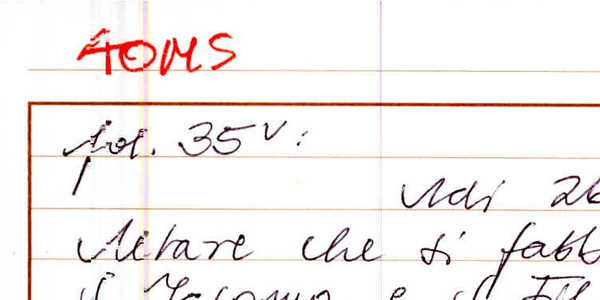 40MS
fol. 35v:
Adi 26
Altare che si fabb
S. Jacomo e S. Fil